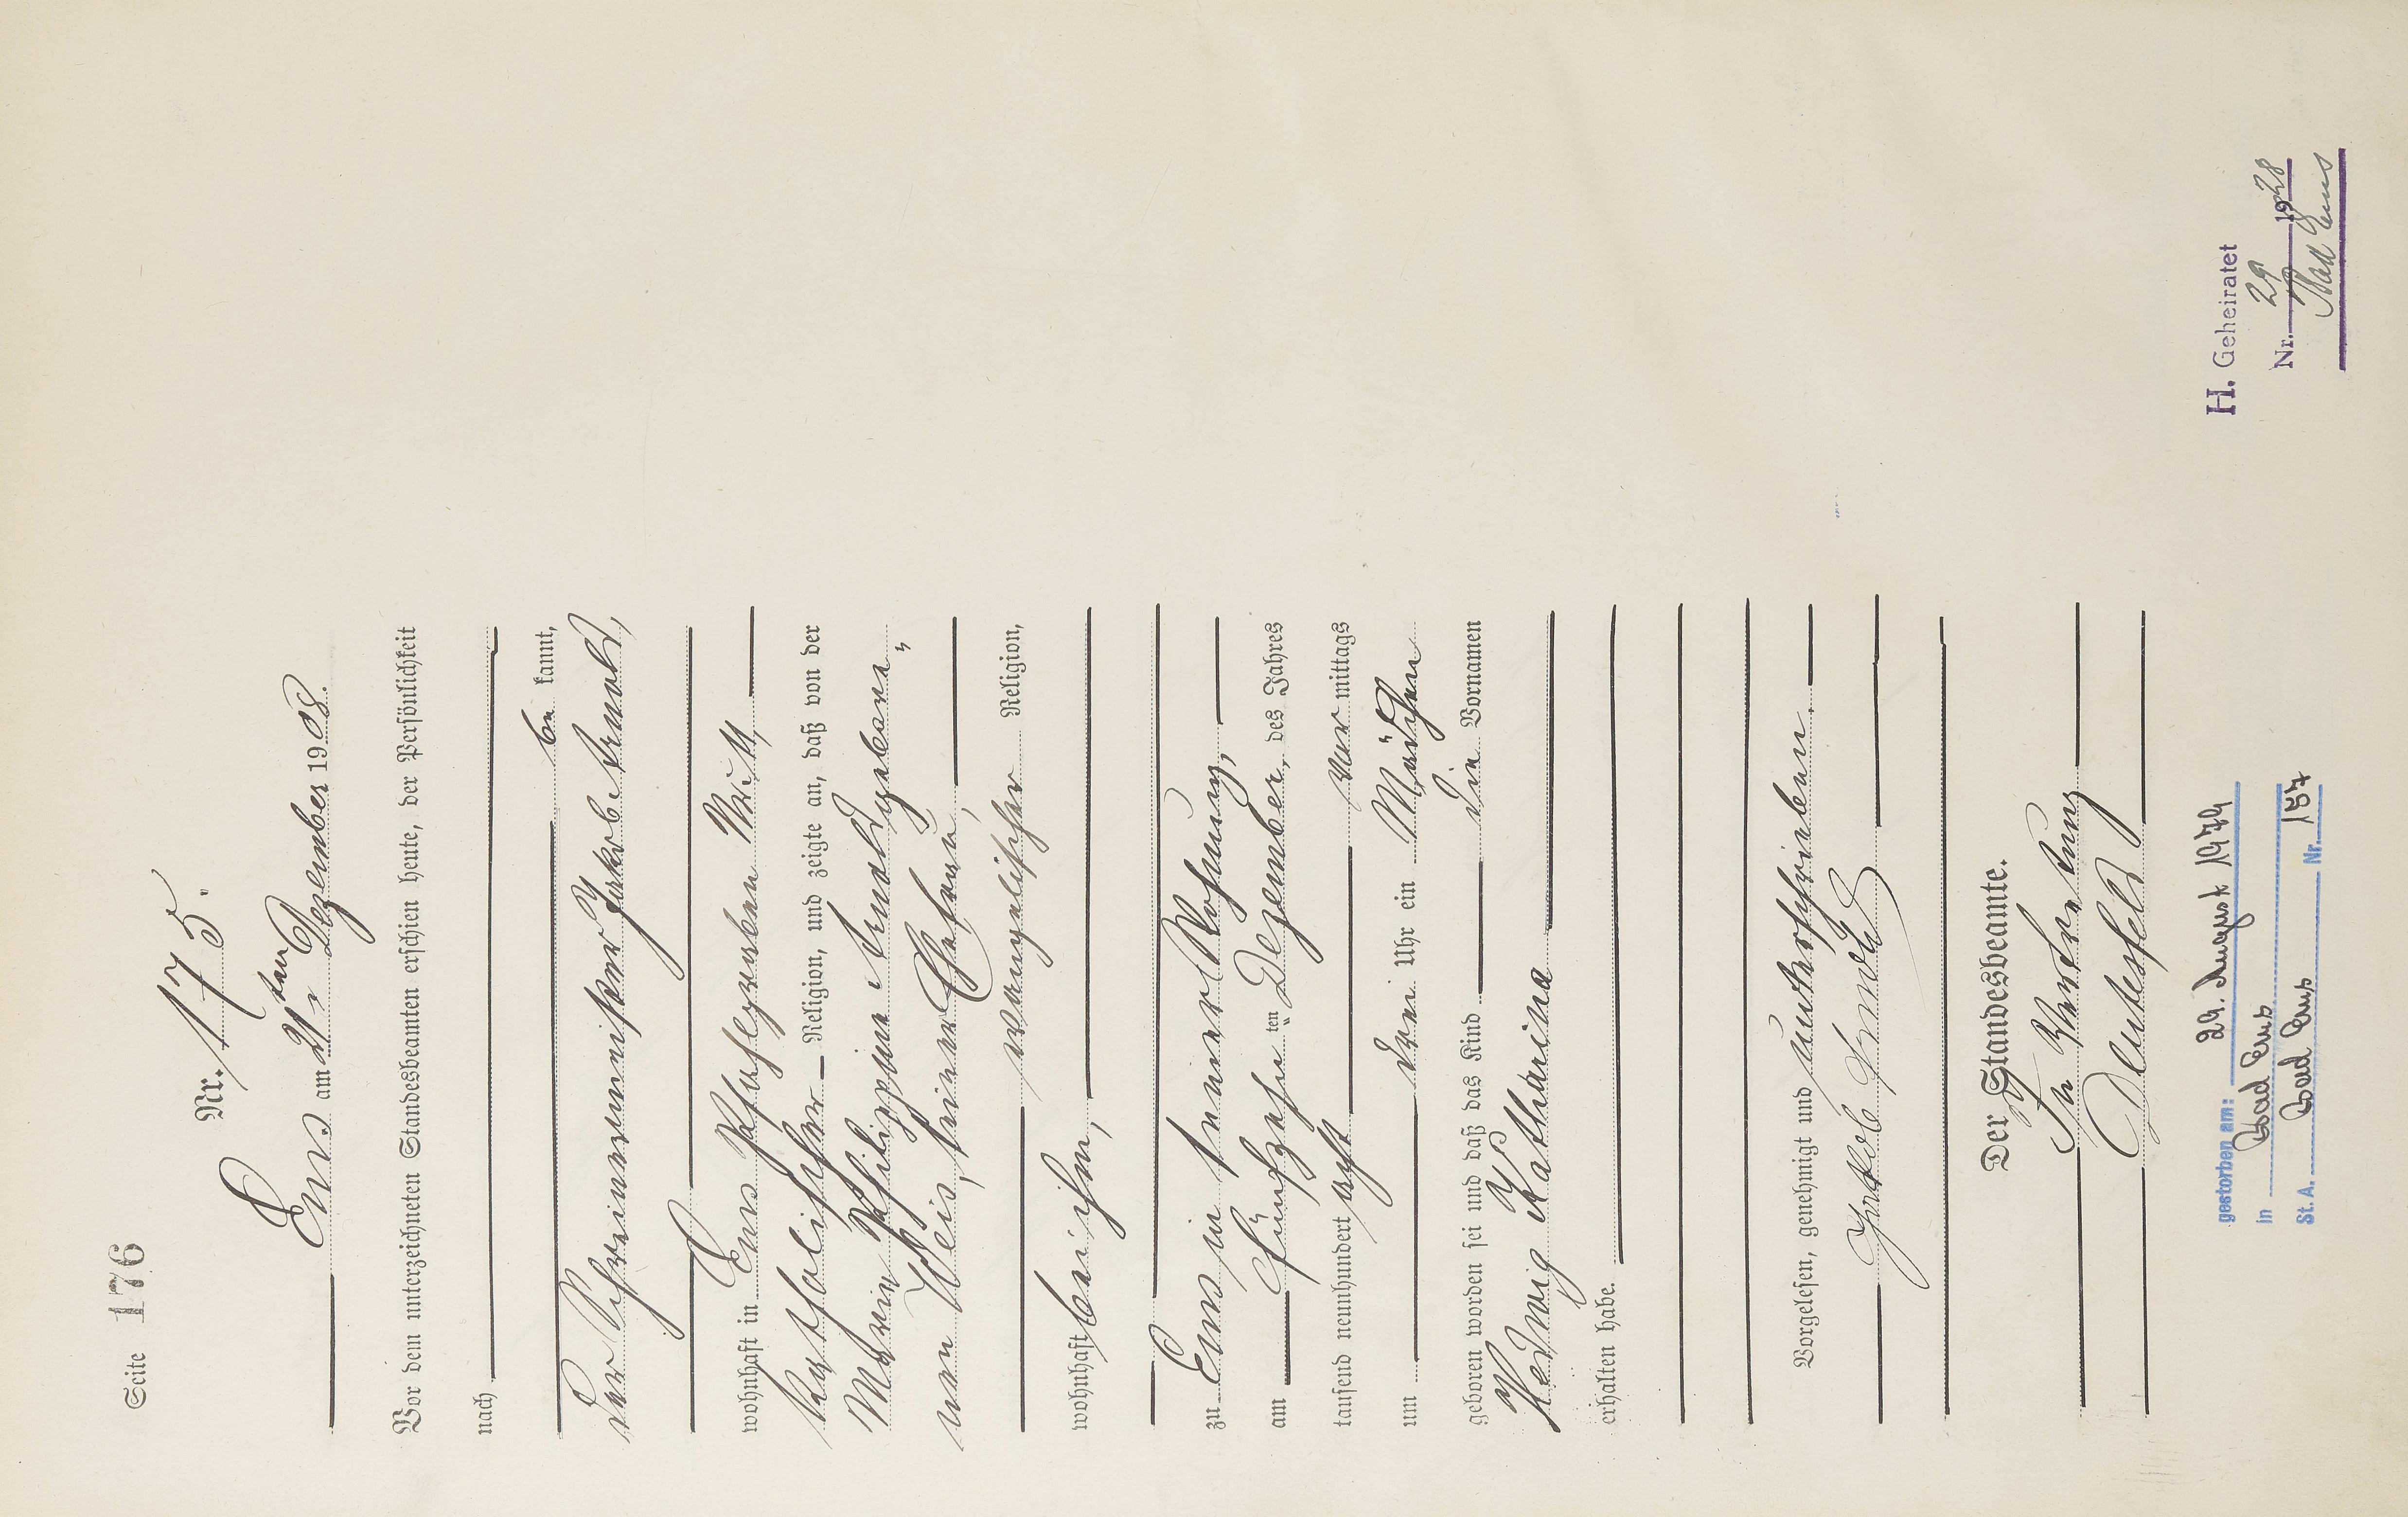 Seite 176
Nr. 175.
Ems am 21ten Dezember 1908.
Vor dem unterzeichneten Standesbeamten erschien heute, der Persönlichkeit
nach
be kannt,
der Schreinermeister Jakob Arnold,
wohnhaft in Ems
katholischer Religion, und zeigte an, daß von der
Maria Philippine Arnold gebore-
nen Weis, seiner Ehefrau,
evangelischer Religion,
wohnhaft bei ihm,
zu Ems in seiner Wohnung,
am fünfzehnten Dezember des Jahres
tausend neunhundert acht vor mittags
um drei Uhr ein Mädchen
geboren worden sei und daß das Kind die Vornamen
Hedwig Katharina
erhalten habe.
Vorgelesen, genehmigt und unterschrieben.
Jakob Arnold
Der Standesbeamte.
In Vertretung
gestorben am: 29. August 1979
in Bad Ems
St. A. Bad Ems Nr. 157
H. Geheiratet
Nr. 29 1928
Bad Ems